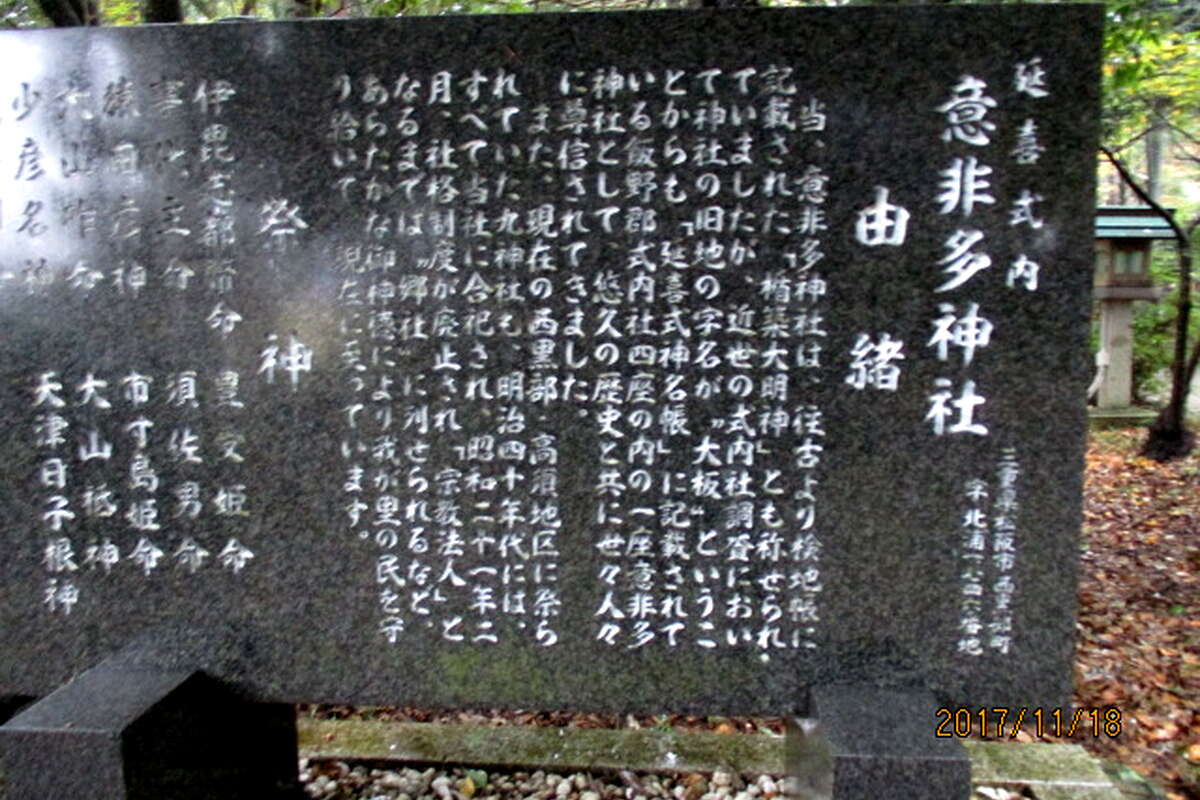 延喜式内
意非多神社
三重県松阪市西黒部町
字北浦
番地
由緒
当、意非多神社は、往古より検地帳に
記載された「楯築大明神」とも称せられ、
ていましたが、近世の式内社調査におい
て神社の旧地の字名が〝大板〟というこ
とからも「延喜式神名帳」に記載されて
いる飯野郡式内社四座の内の一座意非多
神社として、悠久の歴史と共に世々人々
に尊信されてきました。
また、現在の西黒部・高須地区に祭ら
れていた九神社も、明治四十年代には、
すべて当社に合祀され、昭和二十一年二
月、社格制度が廃止され「宗教法人」と
なるまでは〝郷社〟に列せられるなど、
あらたかな御神徳により我が里の民を守
り給いて現在に至っています。
祭神
伊毘志都幣命 豊受姫命
事代主命 須佐男命
猿田彦神 市寸島姫命
大山咋命 大山祇神
少彦名神 天津日子根神
2017/11/18